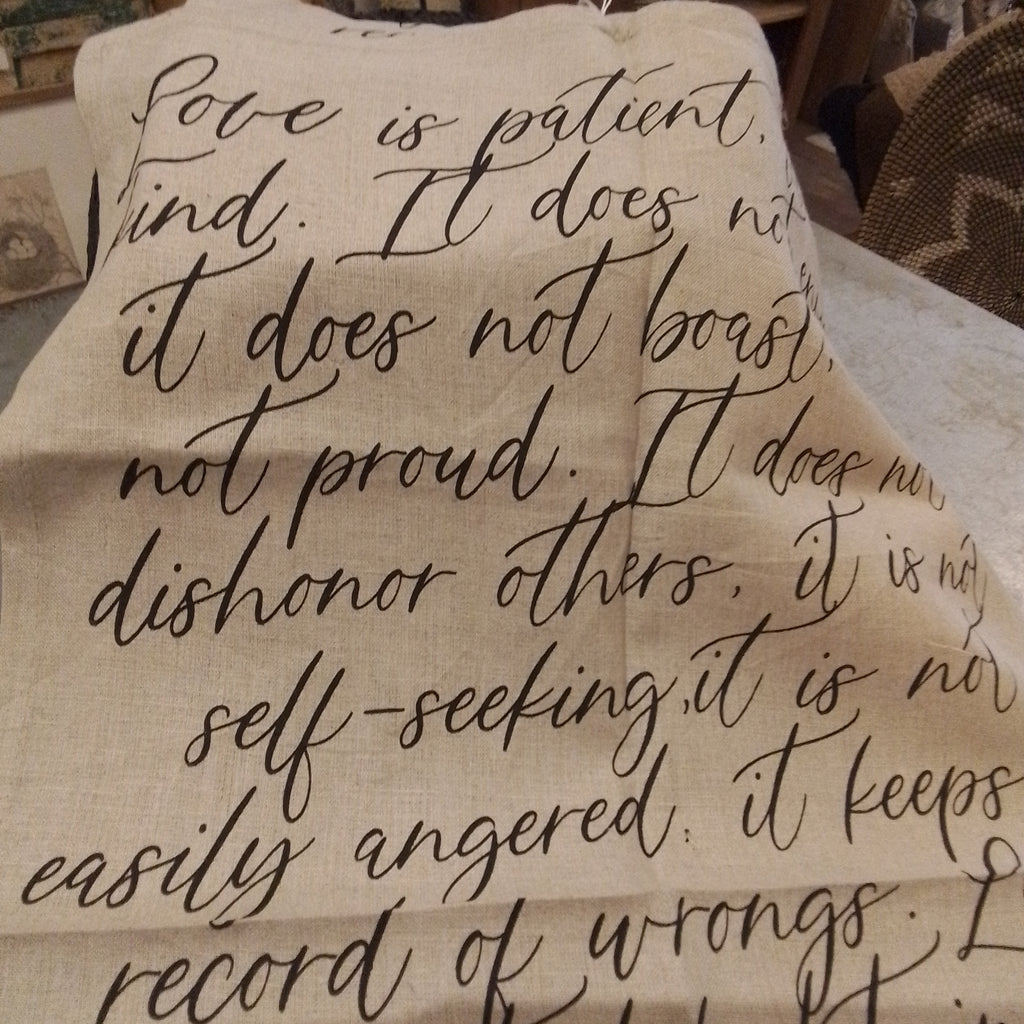 Love is patient,
ind. It does not
it does not boast,
not proud. It does not
dishonor others, it is not
self-seeking, it is not
easily angered, it keeps
record of wrongs. L